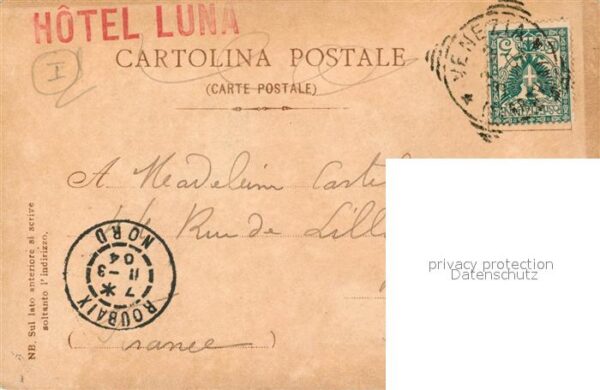 HÔTEL LUNA
I
CARTOLINA POSTALE
(CARTE POSTALE)
VENEZIA
A Madeleine
44 Rue de Lill
privacy protection
Datenschutz
ROUBAIX
7 * 11-3
04
NORD
(France)
NB. Sul lato anteriore si scrive
soltanto l'indirizzo.